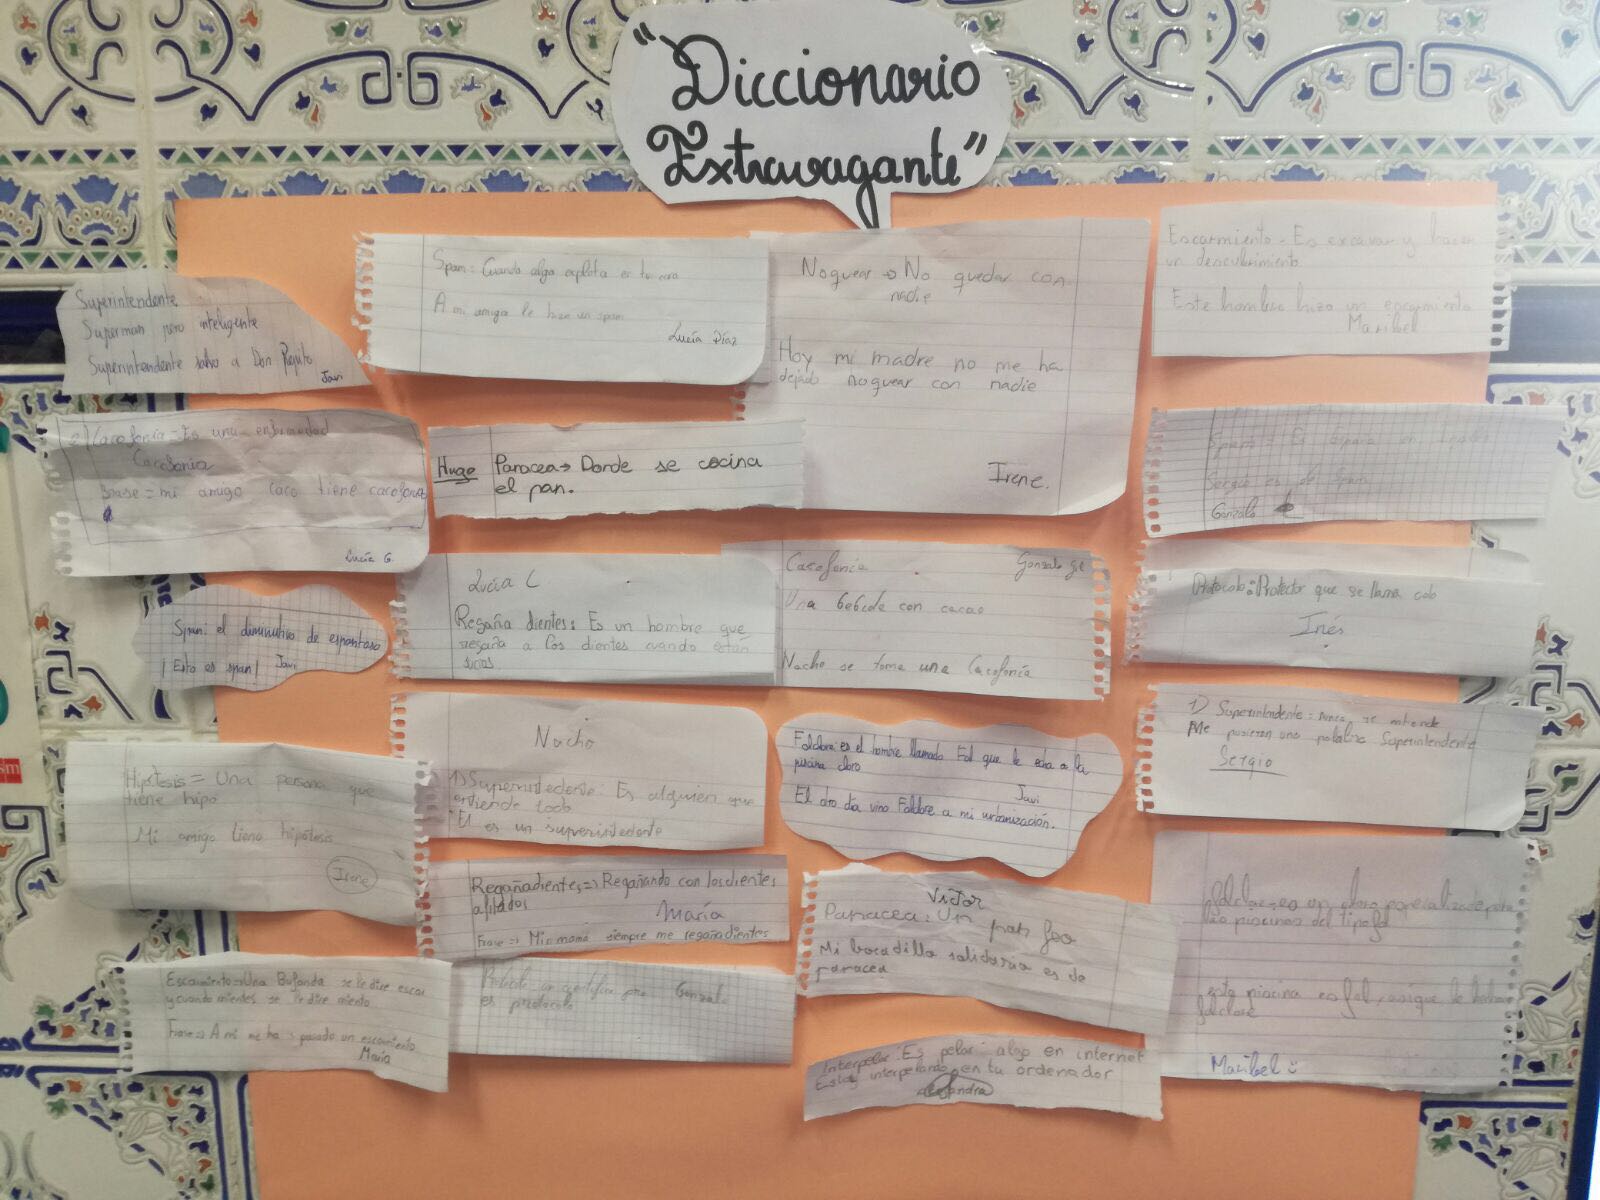 "Diccionario
Extravagante"
Superintendente
Superman pero inteligente
Superintendente salvo a Don Pepito
Javi
Spam: Cuando algo explota en tu cara
A mi amiga le hizo un spam
Lucía Díaz
Noquear → No quedar con
nadie
Hoy mi madre no me ha
dejado noquear con nadie
Irene.
Escarmiento - Es excavar y hacer
un descubrimiento
Este hombre hizo un escarmiento
Maribel
2) Cacofonía = Es una enfermedad
Cacofonía
Frase = mi amigo caco tiene cacofonía
Lucía G.
Hugo Panacea → Donde se cocina
el pan.
Spam = Es España en inglés
Sergio es de Spam
Gonzalo
Span: el diminutivo de espantoso
¡Esto es span! Javi
Lucía C
Regaña dientes: Es un hombre que
regaña a los dientes cuando están
sucios
Cacofonía Gonzalo Gil
Una bebida con cacao
Nacho se toma una Cacofonía
Protocolo: Protector que se llama colo
Inés
Hipótesis = Una persona que
tiene hipo
Mi amigo tiene hipótesis
Irene
Nacho
1) Superintedente: Es alguien que
entiende todo
El es un superintedente
Folclore: es el hombre llamado Fol que le echa a la
piscina cloro
Javi
El otro día vino Folclore a mi urbanización.
1) Superintendente: nunca se entiende
Me pusieron una palabra Superintendente
Sergio
Regañadientes => Regañando con los dientes
afilados
María
Frase => Mi mamá siempre me regañadientes
Victor
Panacea: Un
pan feo
Mi bocadillo solidario es de
panacea
Folclore = es un cloro especializado para
las piscinas del tipo fol
esta piscina es fol, asique le
folclore
Maribel :)
Escarmiento => Una Bufanda se le dice escar
y cuando mientes se le dice miento
Frase => A mi me ha pasado un escarmiento
María
Gonzalo
es protocolo
Interpelar: Es pelar algo en internet
Estoy interpelando en tu ordenador
Alejandra
sm